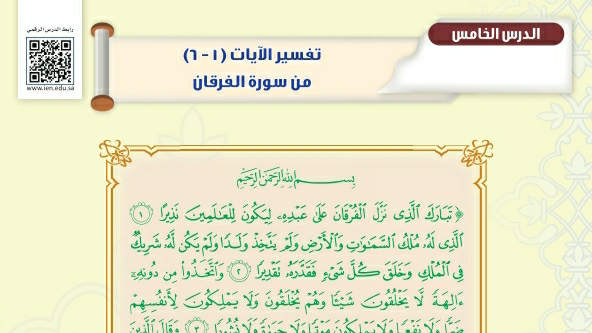 رابط الدرس الرقمي
www.ien.edu.sa
الدرس الخامس
تفسير الآيات (١ - ٦)
من سورة الفرقان
بِسْمِ اللَّهِ الرَّحْمَٰنِ الرَّحِيمِ
﴿ تَبَارَكَ ٱلَّذِى نَزَّلَ ٱلْفُرْقَانَ عَلَىٰ عَبْدِهِۦ لِيَكُونَ لِلْعَٰلَمِينَ نَذِيرًا ١
ٱلَّذِى لَهُۥ مُلْكُ ٱلسَّمَٰوَٰتِ وَٱلْأَرْضِ وَلَمْ يَتَّخِذْ وَلَدًا وَلَمْ يَكُن لَّهُۥ شَرِيكٌ
فِى ٱلْمُلْكِ وَخَلَقَ كُلَّ شَىْءٍ فَقَدَّرَهُۥ تَقْدِيرًا ٢ وَٱتَّخَذُوا۟ مِن دُونِهِۦٓ
ءَالِهَةً لَّا يَخْلُقُونَ شَيْـًٔا وَهُمْ يُخْلَقُونَ وَلَا يَمْلِكُونَ لِأَنفُسِهِمْ
ضَرًّا وَلَا نَفْعًا وَلَا يَمْلِكُونَ مَوْتًا وَلَا حَيَوٰةً وَلَا نُشُورًا ٣ وَقَالَ ٱلَّذِينَ